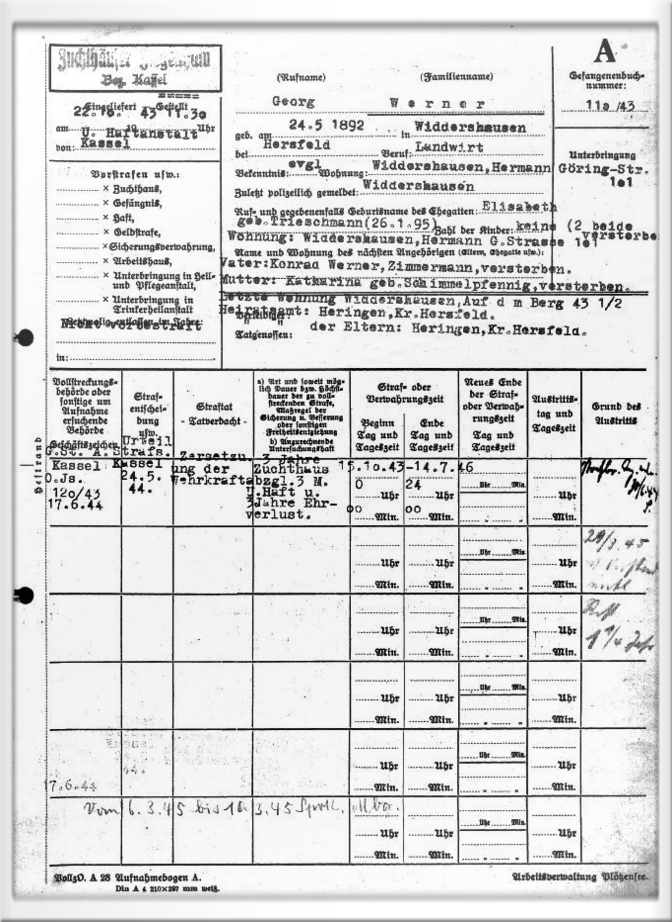 Zuchthaus
Bez. Kassel
A
(Rufname) (Familienname)
Gefangenenbuch-
nummer:
Georg Werner
11a/43
Eingeliefert Gestellt
am 22.10. 43 11.30 Uhr
U. Haftanstalt
von: Kassel
geb. am 24.5 1892 in Widdershausen
bei Hersfeld Beruf: Landwirt
Bekenntnis: evgl Wohnung: Widdershausen,Hermann Göring-Str. 1e1
Unterbringung
Zuletzt polizeilich gemeldet: Widdershausen
Ruf- und gegebenenfalls Geburtsname des Ehegatten: Elisabeth
geb.Trieschmann(26.1.95) Zahl der Kinder: keine (2 beide
verstorbe
Wohnung: Widdershausen,Hermann G.Strasse 1e1
Name und Wohnung des nächsten Angehörigen (Eltern, Ehegatte usw.):
Vater:Konrad Werner,Zimmermann,verstorben.
Mutter: Katharina geb.Schimmelpfennig,verstorben.
Letzte Wohnung Widdershausen,Auf d m Berg 43 1/2
Heiratsamt: Heringen,Kr.Hersfeld.
" " der Eltern: Heringen,Kr.Hersfeld.
Tatgenossen:
Vorstrafen usw.:
× Zuchthaus,
× Gefängnis,
× Haft,
× Geldstrafe,
×Sicherungsverwahrung,
× Arbeitshaus,
× Unterbringung in Heil-
und Pflegeanstalt,
× Unterbringung in
Trinkerheilanstalt
Nicht vorbestraft
in:
Vollstreckungs-
behörde oder
sonstige um
Aufnahme
ersuchende
Behörde
Geschäftszeichen
Straf-
entschei-
dung
usw.
Straftat
- Tatverdacht -
a) Art und soweit mög-
lich Dauer bzw. Höchst-
dauer der zu voll-
streckenden Strafe,
Maßregel der
Sicherung u. Besserung
oder sonstigen
Freiheitsentziehung
b) Anzurechnende
Untersuchungshaft
Straf- oder
Verwahrungszeit
Beginn
Tag und
Tageszeit
Ende
Tag und
Tageszeit
Neues Ende
der Straf-
oder Verwah-
rungszeit
Tag und
Tageszeit
Austritts-
tag und
Tageszeit
Grund des
Austritts
Heftrand
G.St. A.
Kassel
O.Js.
12o/43
17.6.44
Urteil
Strafs.
Kassel
24.5.
44.
Zersetzu
ung der
Wehrkraft
3 Jahre
Zuchthaus
abzgl.3 M.
U.Haft u.
3Jahre Ehr-
verlust.
15.10.43-14.7.46
0 24
Uhr Uhr Uhr
oo oo
Min. Min. Min.
29/3.45
Uhr Min.
Uhr Uhr Uhr
Min. Min. Min.
Uhr Min.
Uhr Uhr Uhr
Min. Min. Min.
Uhr Min.
Uhr Uhr Uhr
Min. Min. Min.
44.
17.6.44
Uhr Min.
Uhr Uhr Uhr
Min. Min. Min.
Vom 6.3.45 bis 3.45
Uhr Min.
Uhr Uhr Uhr
Min. Min. Min.
VollzO. A 28 Aufnahmebogen A.
Din A 4 210×297 mm weiß.
Arbeitsverwaltung Plötzensee.